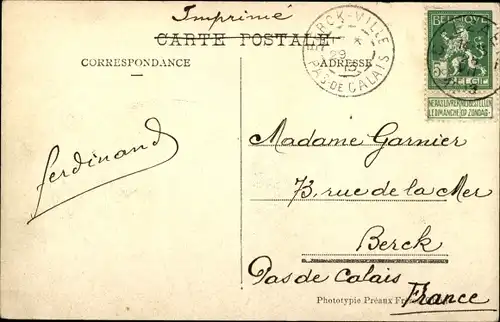 Imprimé
CARTE POSTALE
BERCK-VILLE
29
13
PAS-DE-CALAIS
BELGIQUE
NE PAS LIVRER
NIET BESTELLEN
LE DIMANCHE
OP ZONDAG
CORRESPONDANCE
ADRESSE
ferdinand
Madame Garnier
73, rue de la Mer
Berck
Pas de Calais
France
Phototypie Préaux